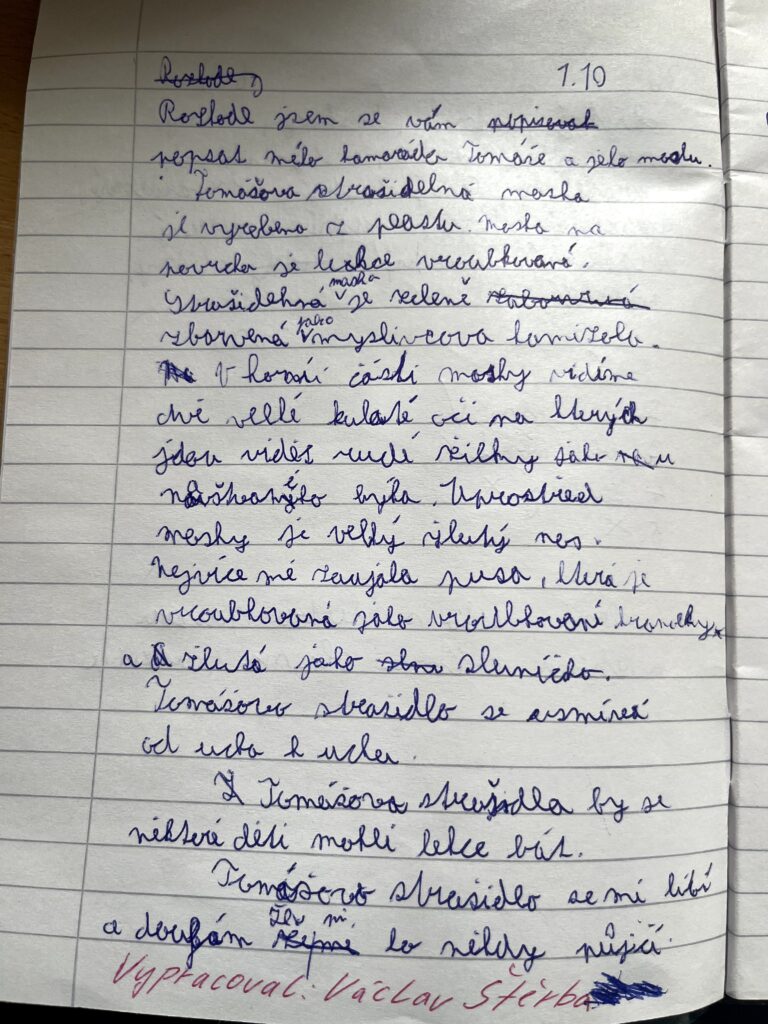 1.10
Rozhodl jsem se vám popisovat
popsat mého kamaráda Tomáše a jeho masku.
Tomášova strašidelná maska
je vyrobena z plastu. Maska na
povrchu je lehce vroubkovaná.
Strašidelná maska je zeleně
zbarvená jako myslivcova kamizola.
V horní části masky vidíme
dvě velké kulaté oči na kterých
jdou vidět rudé žilky jako u
naštvaného býka. Uprostřed
masky je velký žlutý nos.
Nejvíce mě zaujala pusa, která je
vroubkovaná jako vroubkované brambůrky
a žlutá jako sluníčko.
Tomášovo strašidlo se usmívá
od ucha k uchu.
Z Tomášova strašidla by se
některé děti mohli lekce bát.
Tomášovo strašidlo se mi líbí
a doufám že mi to někdy půjčí.
Vypracoval: Václav Štěrba